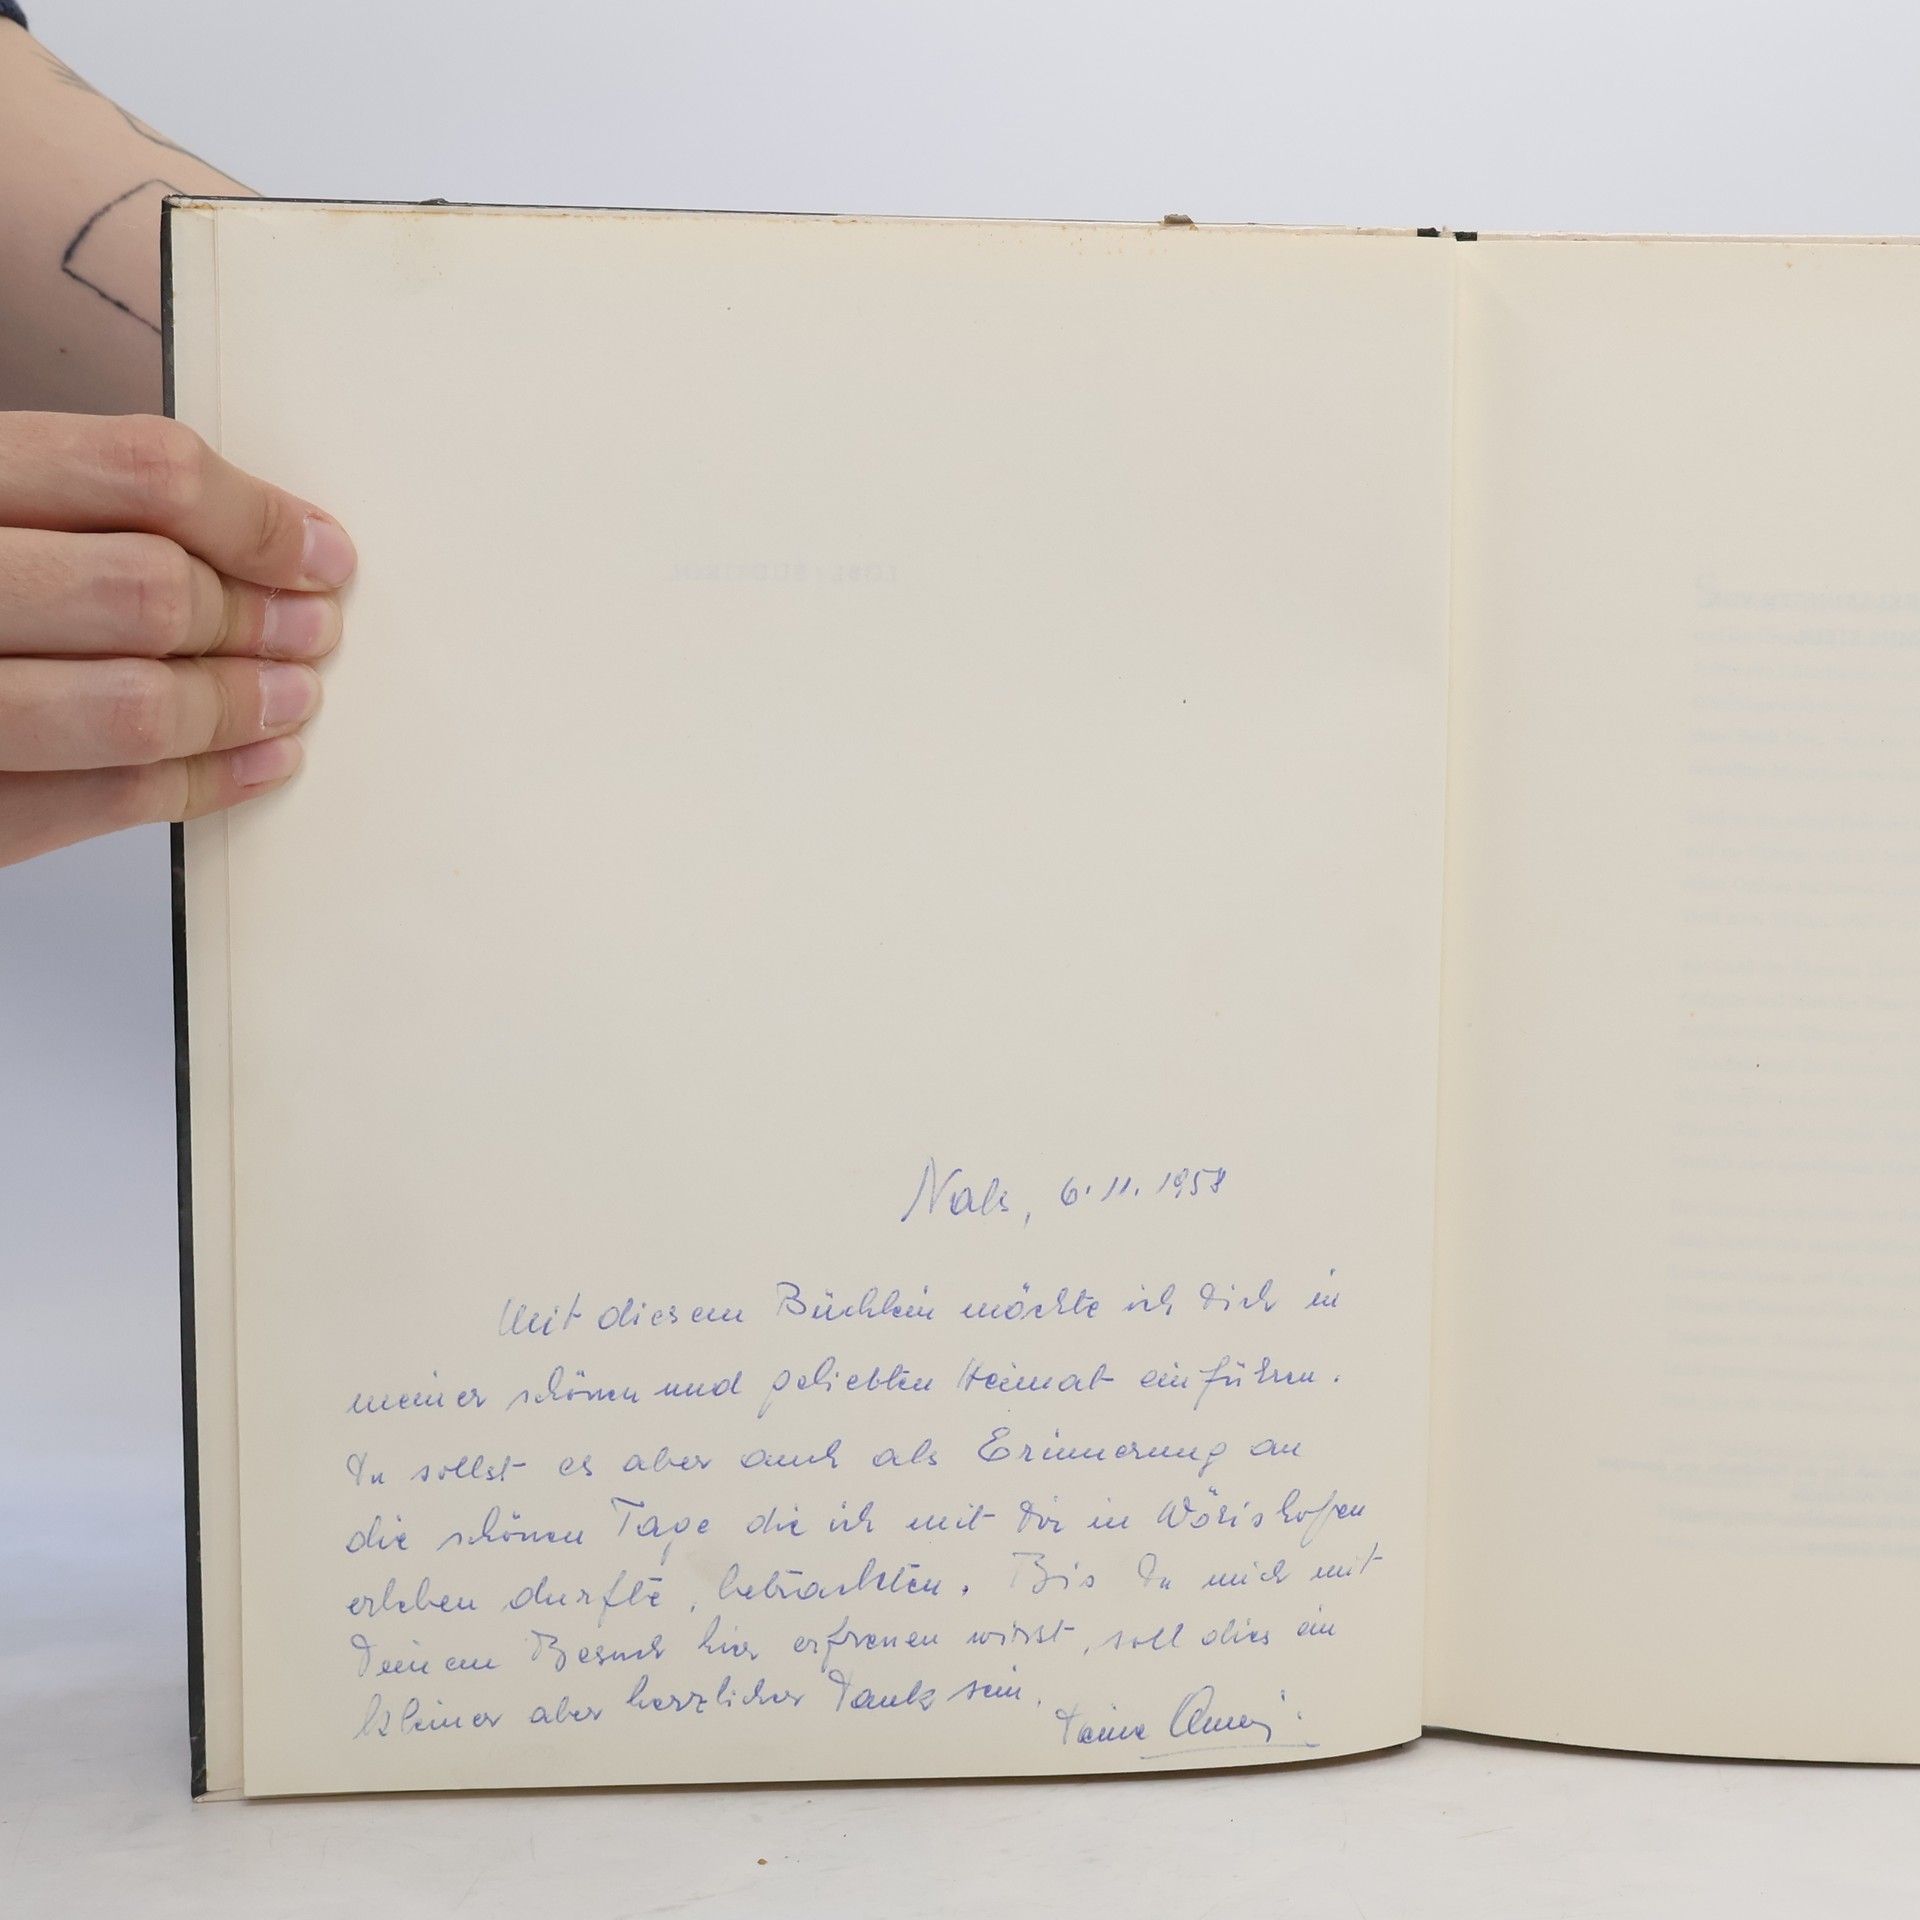 Nals, 6.11.1958
Mit diesem Büchlein möchte ich Dich in
meiner schönen und geliebten Heimat einführen.
Du sollst es aber auch als Erinnerung an
die schönen Tage die ich mit Dir in Wörishofen
erleben durfte, betrachten. Bis Du mich mit
Deinem Besuch hier erfreuen wirst, soll dies ein
kleiner aber herzlicher Dank sein.
Deine